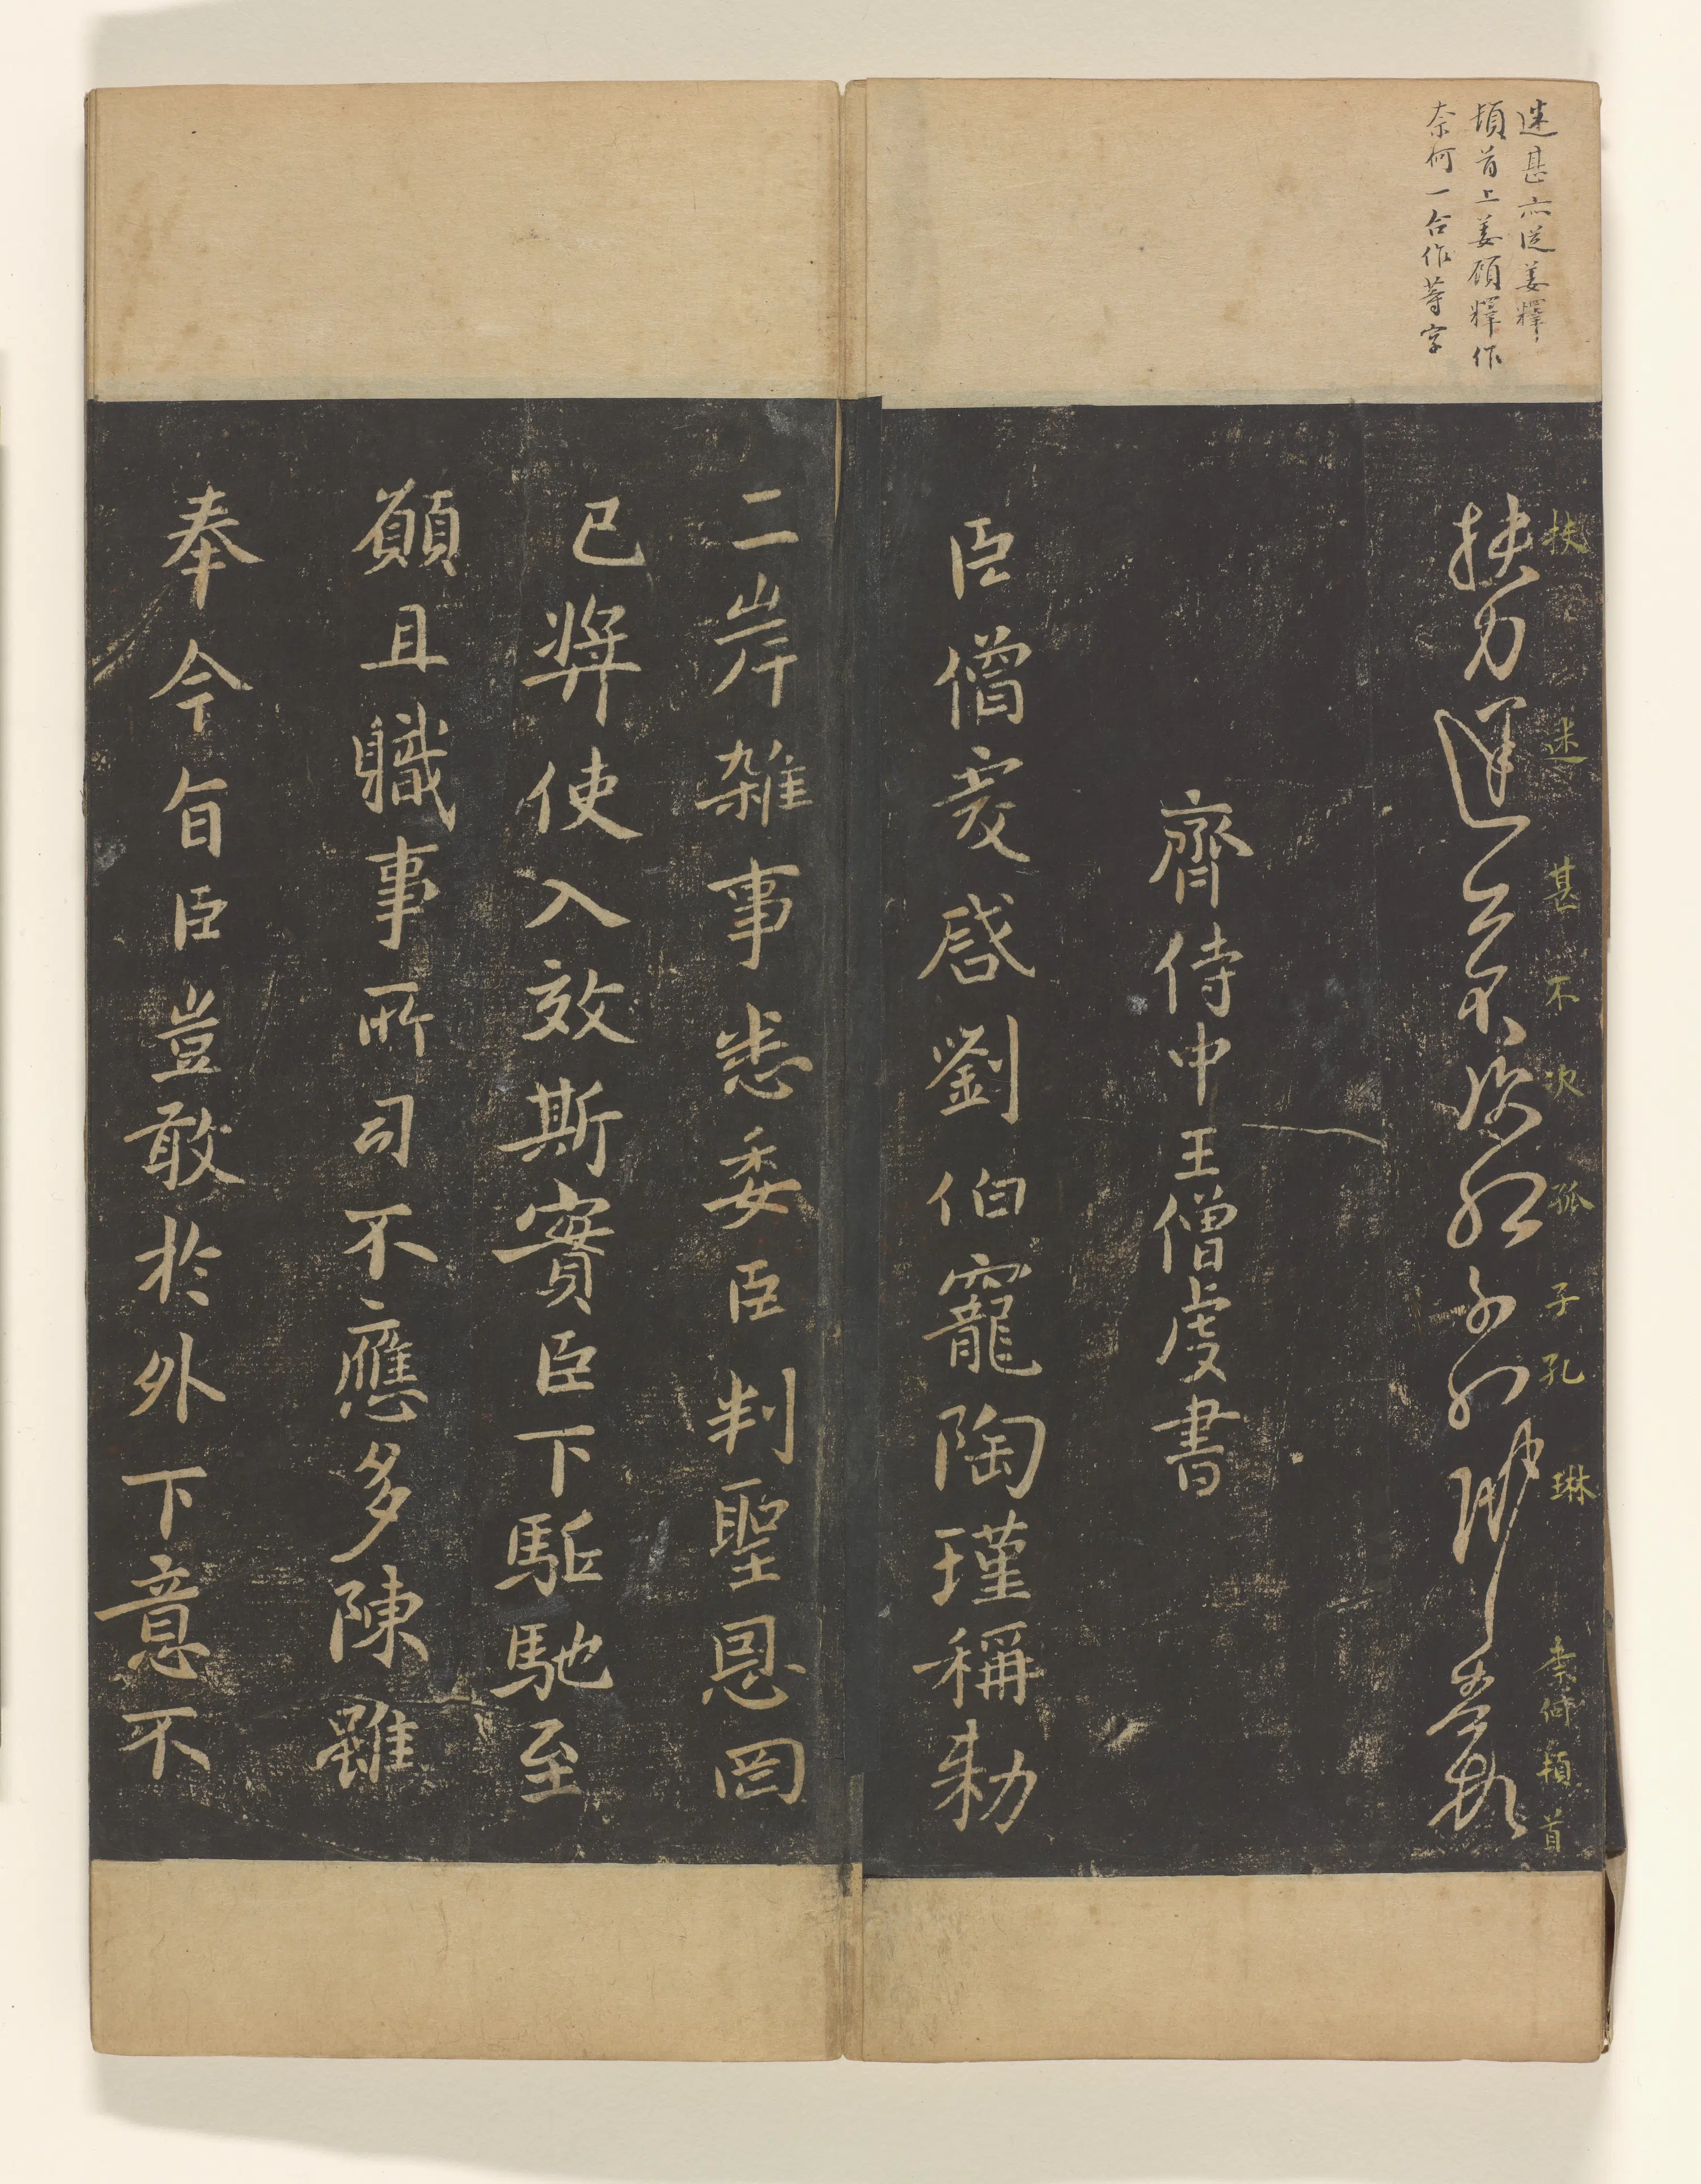 迷甚亦從姜釋
頓首上姜顧釋作
奈何一合作等字
扶力迷甚不次孤子孔琳奈何頓首
扶迷甚不次孤子孔琳奈何頓首
齊侍中王僧虔書
臣僧虔啓劉伯寵陶瑾稱勑
二岸雜事悉委臣判聖恩罔
已奬使入效斯實臣下駈馳至
願且職事所司不應多陳雖
奉今旨臣豈敢於外下意不